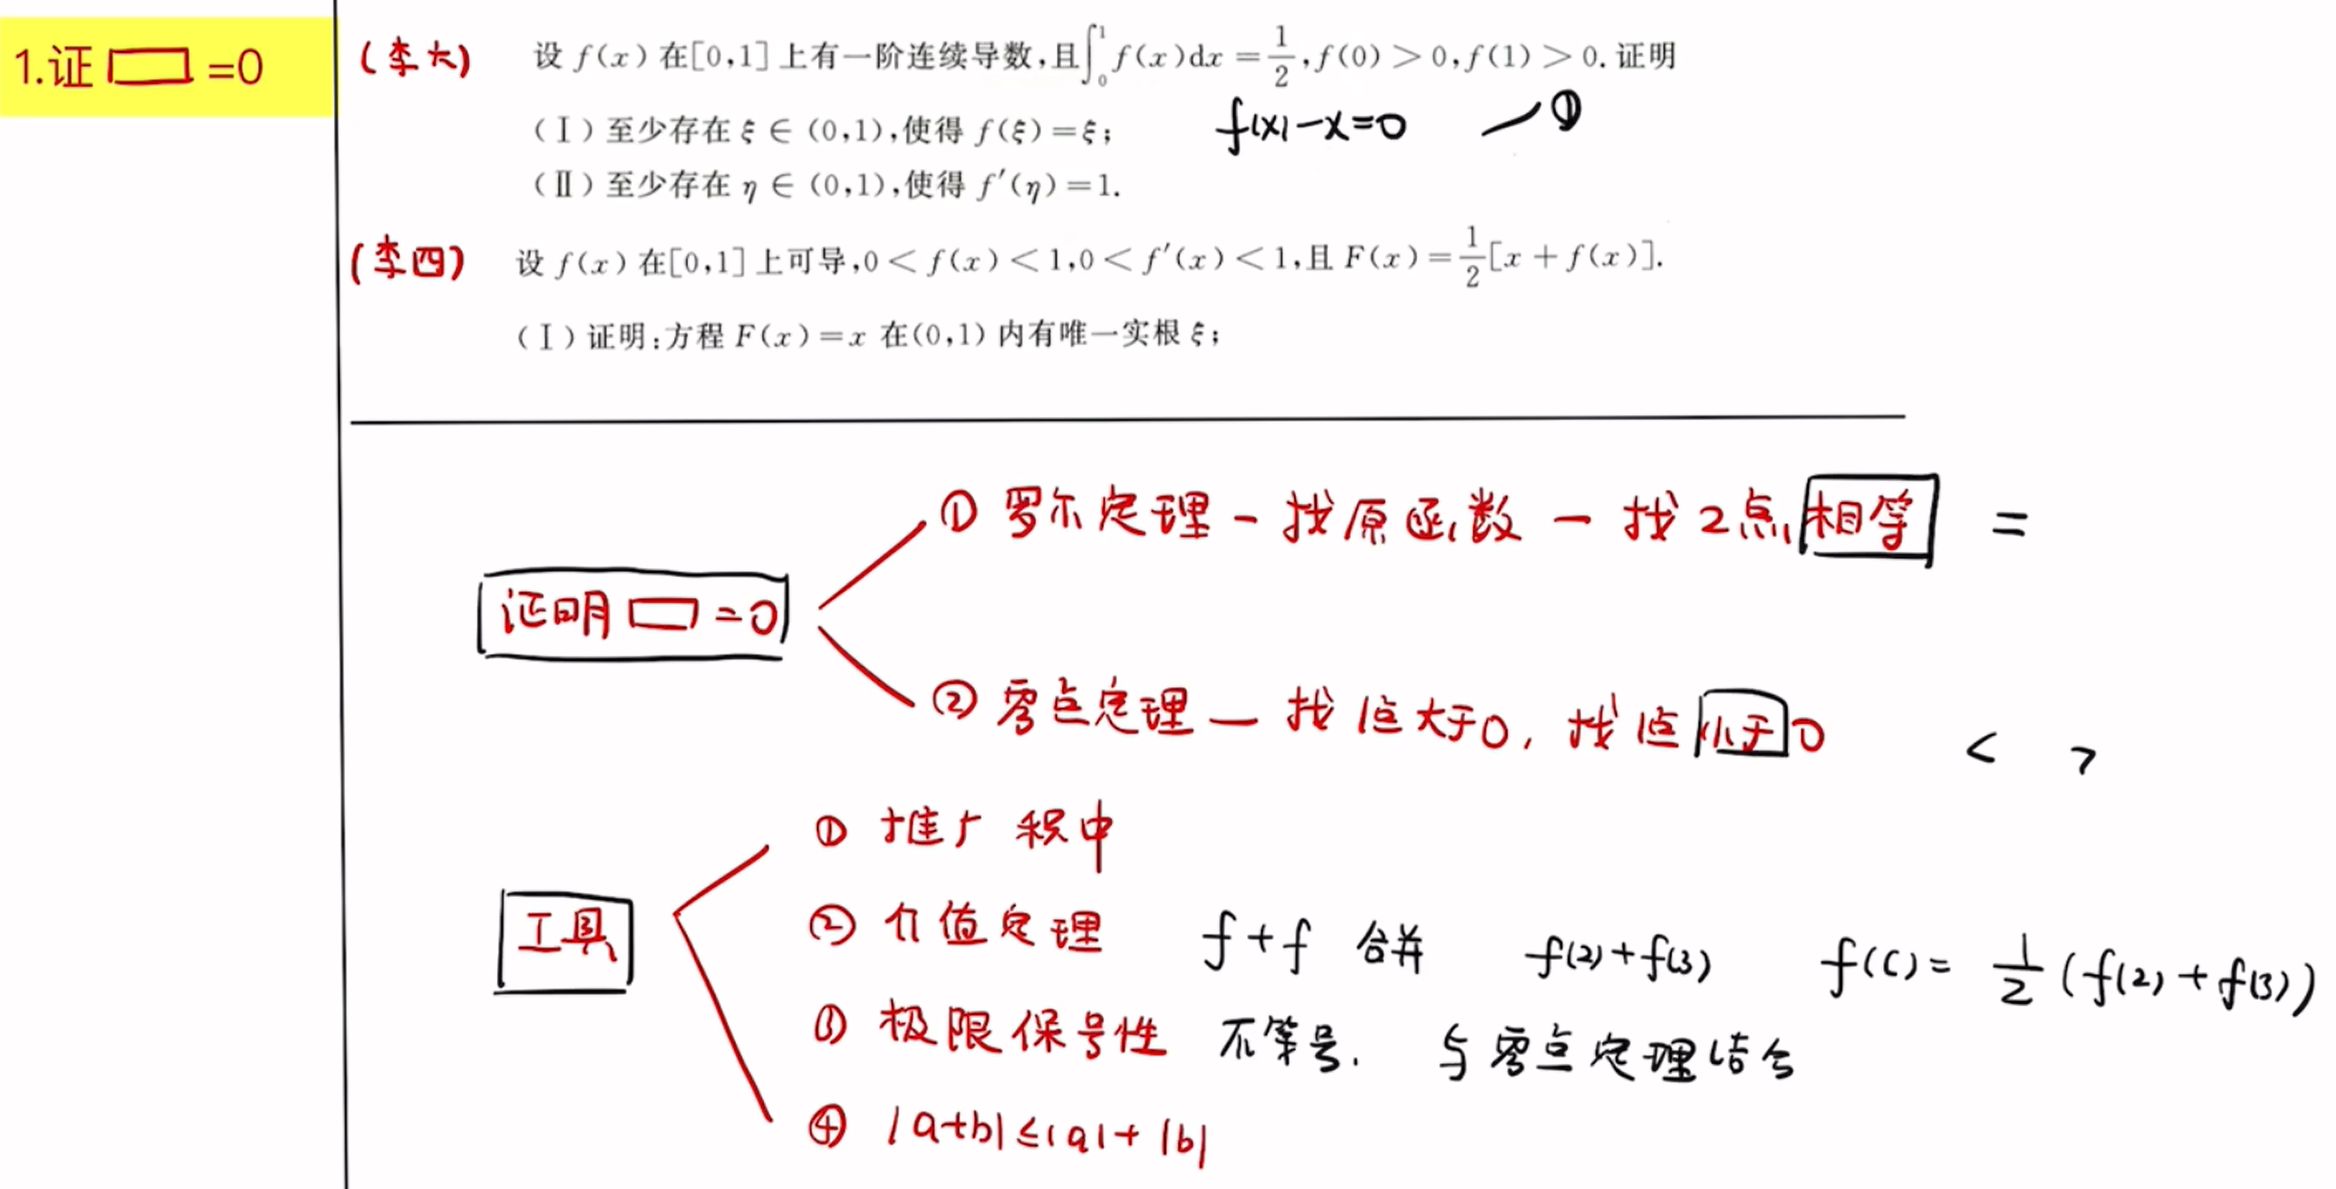 1.证□=0
(李六) 设 f(x) 在[0,1]上有一阶连续导数,且∫₀¹ f(x)dx = 1/2, f(0) > 0, f(1) > 0. 证明
(Ⅰ) 至少存在 ξ ∈ (0,1),使得 f(ξ) = ξ; f(x)-x=0 ①
(Ⅱ) 至少存在 η ∈ (0,1),使得 f′(η) = 1.
(李四) 设 f(x) 在[0,1]上可导,0 < f(x) < 1,0 < f′(x) < 1,且 F(x) = 1/2[x + f(x)].
(Ⅰ) 证明:方程 F(x) = x 在(0,1) 内有唯一实根 ξ;
① 罗尔定理 - 找原函数 - 找2点相等 =
证明□=0
② 零点定理 — 找1点大于0, 找1点小于0 < >
① 推广积中
② 介值定理 f+f 合并 f(2)+f(3) f(c)= 1/2 (f(2)+f(3))
工具
③ 极限保号性 不等号. 与零点定理结合
④ |a+b|≤|a|+|b|